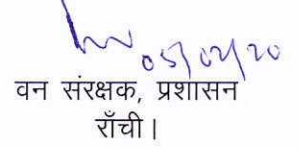 05/02/20
वन संरक्षक, प्रशासन
राँची।